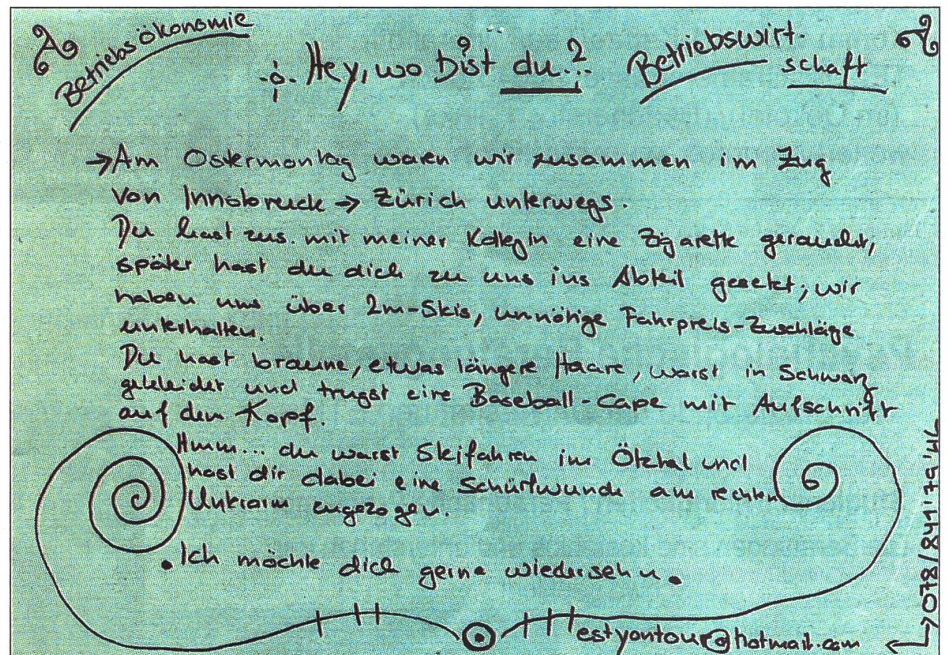 Betriebsökonomie
Hey, wo bist du..?
Betriebswirt-
schaft
→Am Ostermontag waren wir zusammen im Zug
von Innsbruck → Zürich unterwegs.
Du hast zus. mit meiner Kollegin eine Zigarette geraucht,
später hast du dich zu uns ins Abteil gesetzt; wir
haben uns über 2m-Skis, unnötige Fahrpreis-Zuschläge
unterhalten.
Du hast braune, etwas längere Haare, warst in Schwarz
gekleidet und trugst eine Baseball-Cape mit Aufschrift
auf dem Kopf.
Hmm... du warst Skifahren im Ötztal und
hast dir dabei eine Schürfwunde am rechten
Unterarm zugezogen.
• Ich möchte dich gerne wiedersehn.
estyontour@hotmail.com
078/841'79'46